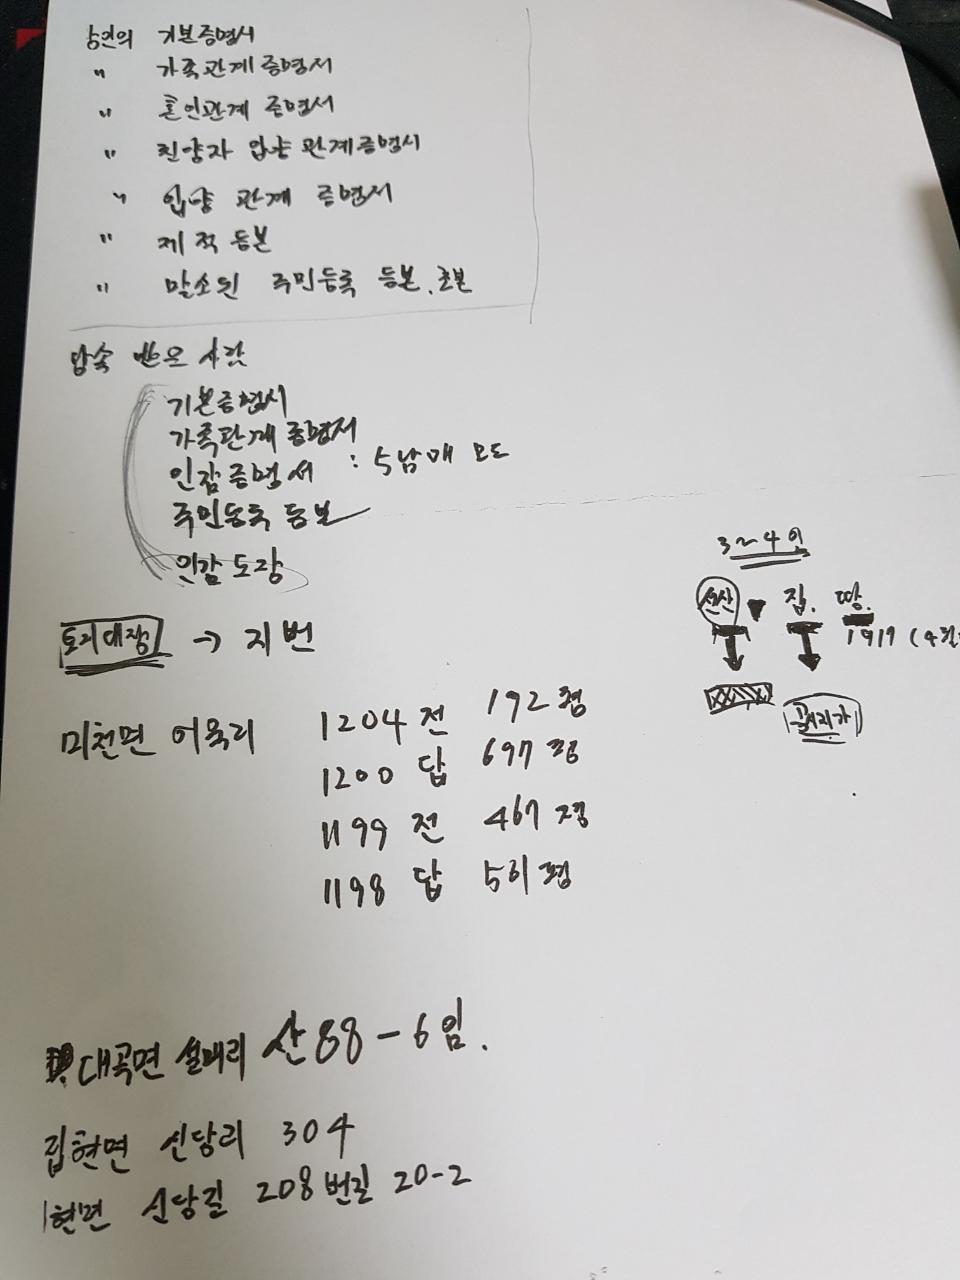 망인의 기본증명서
" 가족관계증명서
" 혼인관계 증명서
" 친양자 입양관계증명서
" 입양 관계 증명서
" 제적등본
" 말소된 주민등록 등본, 초본
상속 받을 사람
기본증명서
가족관계증명서
인감증명서 : 5남매 모두
주민등록 등본
인감도장
토지대장 → 지번
미천면 어옥리 1204 전 192평
1200 답 697평
1199 전 467평
1198 답 561평
3~4억
집. 땅.
대곡면 설매리 산88-6임.
집현면 신당리 304
현면 신당길 208번길 20-2